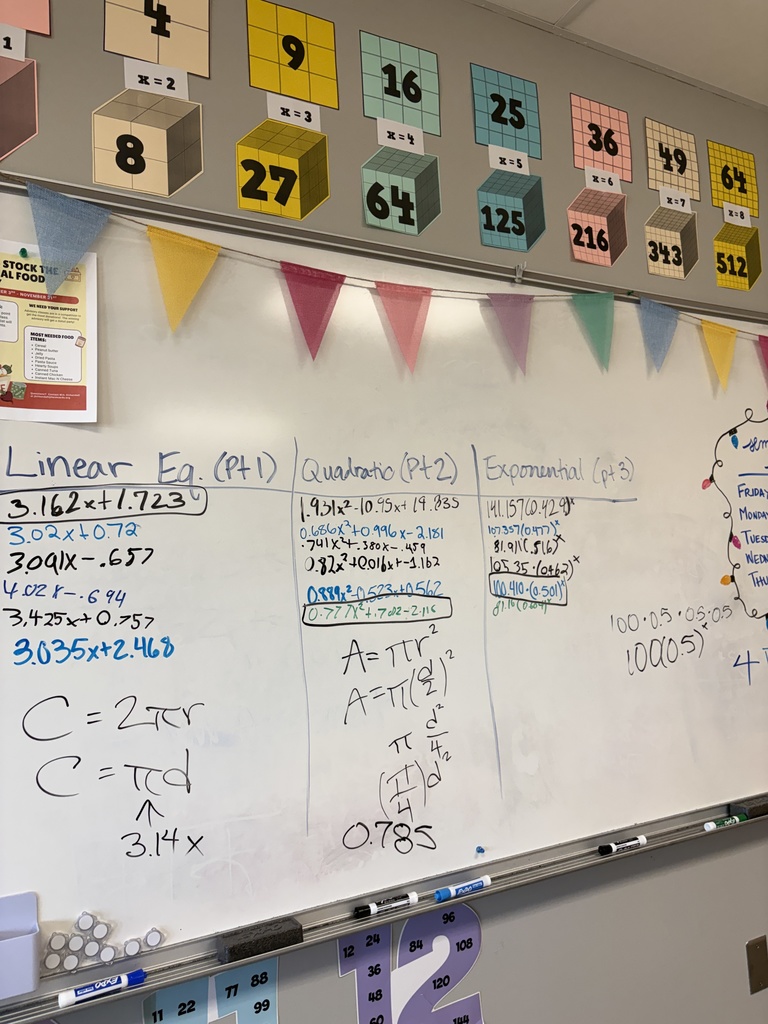 1
4
9
16
25
36
49
64
x = 2
x = 3
x = 4
x = 5
x = 6
x = 7
x = 8
8
27
64
125
216
343
512
STOCK THE
AL FOOD
WE NEED YOUR SUPPORT
MOST NEEDED FOOD
ITEMS:
Linear Eq. (Pt 1)
3.162x+1.723
3.02x+0.72
3.091x-.657
4.02x-.694
3.425x+0.757
3.035x+2.468
C = 2πr
C = πd
↑
3.14x
Quadratic (Pt 2)
1.931x²-10.95x+19.835
0.686x²+0.996x-2.181
.741x²+.380x-.459
0.82x²+0.016x-1.162
0.889x²-0.523x+0.562
0.777x²+.702-2.116
A=πr²
A=π(d/2)²
π d²/4
(π/4)d²
0.785
Exponential (pt 3)
141.157(0.429)ˣ
107.357(0.477)ˣ
81.911(.516)ˣ
105.35·(0.462)ˣ
100.410·(0.501)ˣ
100·0.5·0.5·0.5
100(0.5)ˣ
FRIDAY
MONDA
TUESD
WEDN
THU
4
EXPO
12 24
36
48
60
84
96
108
120
144
11 22
77 88
99